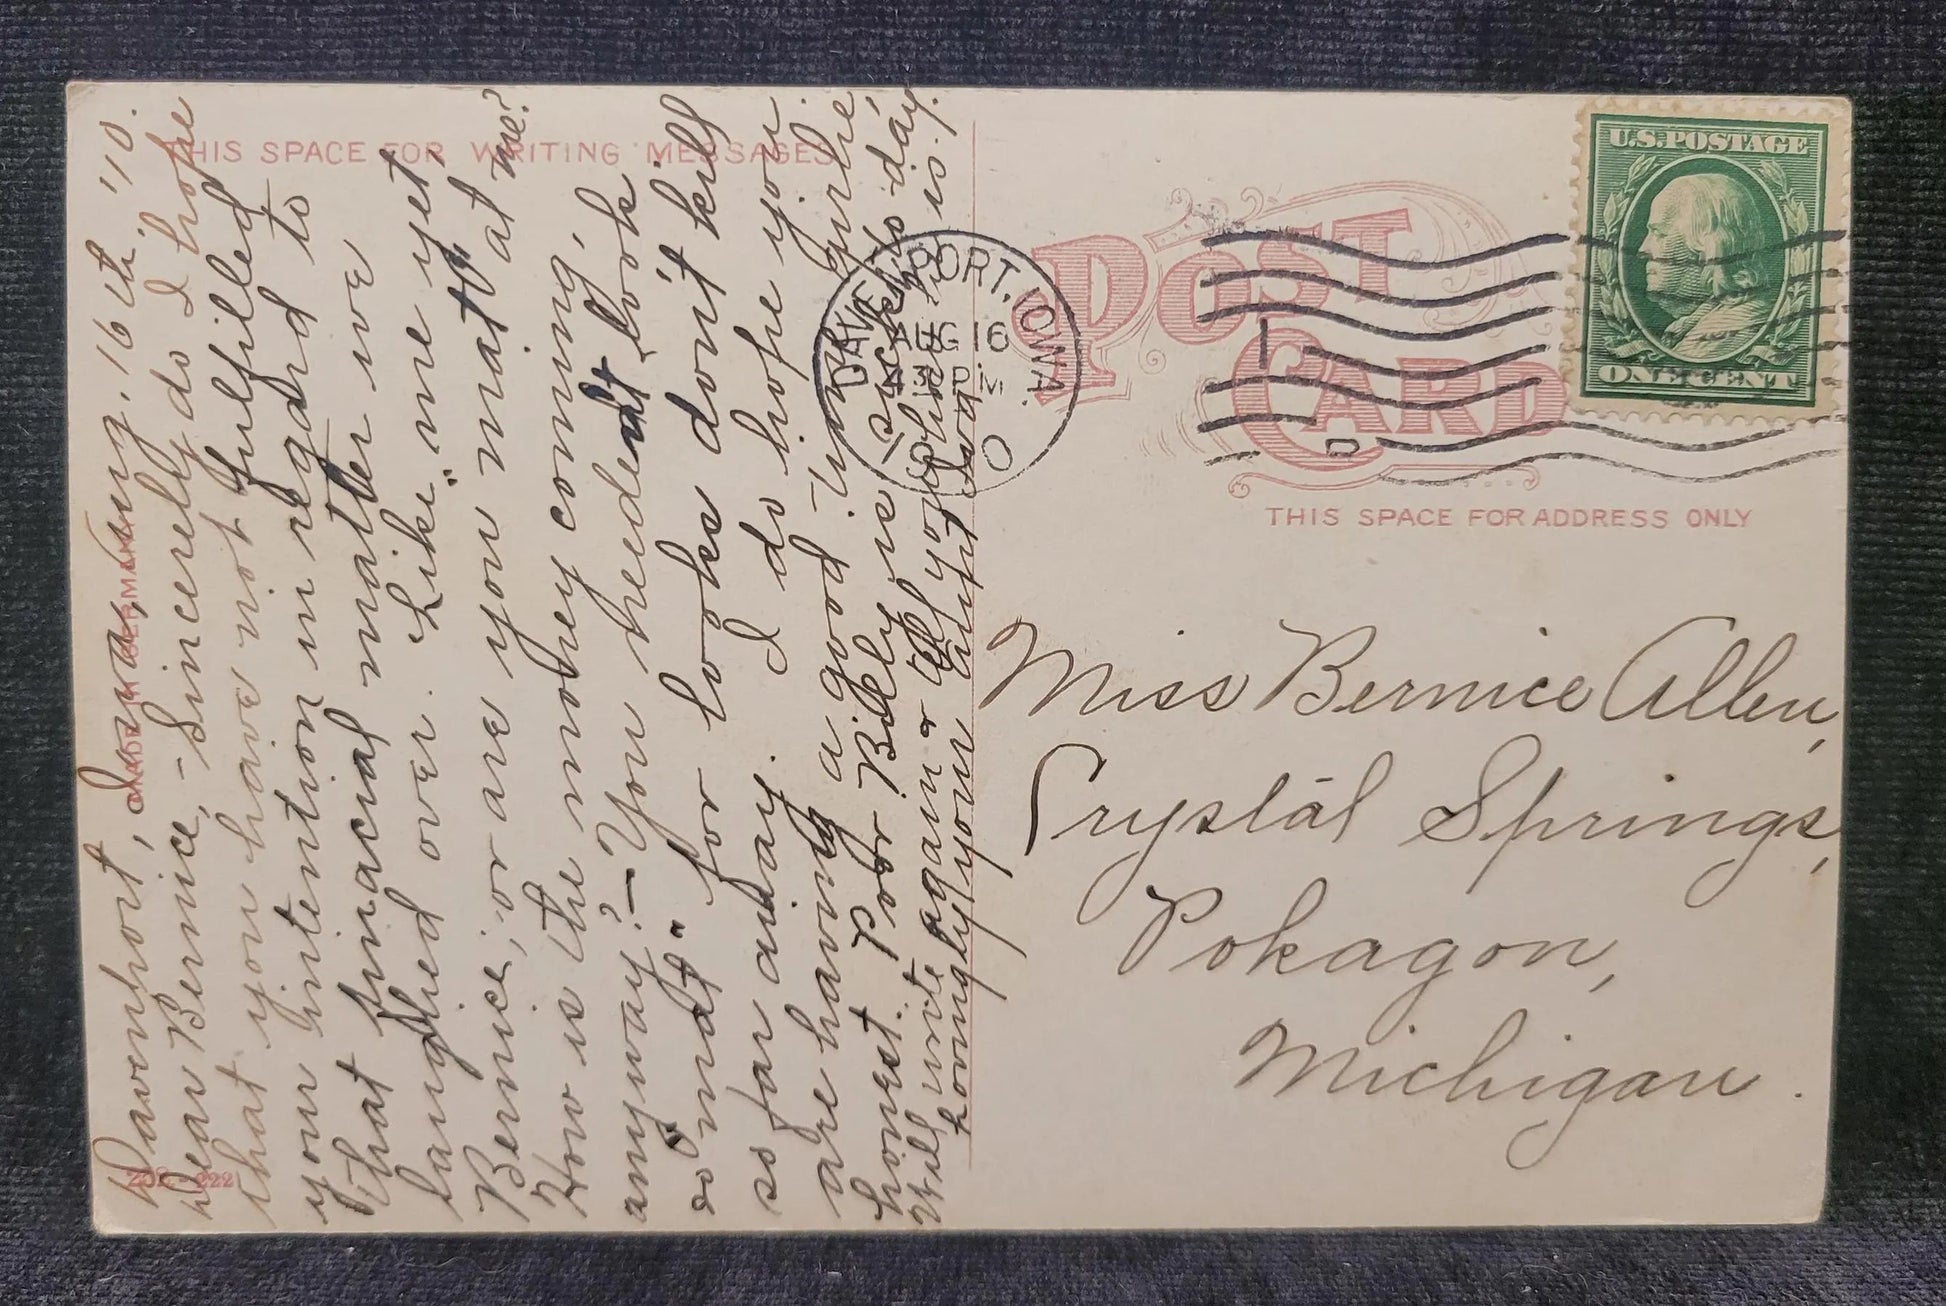 THIS SPACE FOR WRITING MESSAGES
Davenport, Iowa, Aug. 16th, '10.
Dear Bernice, - Sincerely do I hope
that you have not fulfilled
your intention in regard to
that finacial matter we
laughed over. Like me yet,
Bernice, or are you mad at me?
How is the money coming,
anyway? - You needed't look
so "mad" for looks don't kill
so far away. I do hope you
are having a good time girlie,
honest. Poor Billy is
Will write again &
lovingly your
POST CARD
DAVENPORT, IOWA.
AUG 16
PM
1
D
U.S. POSTAGE
ONE CENT
THIS SPACE FOR ADDRESS ONLY
Miss Bernice Allen,
Crystal Springs,
Pokagon,
Michigan.
222